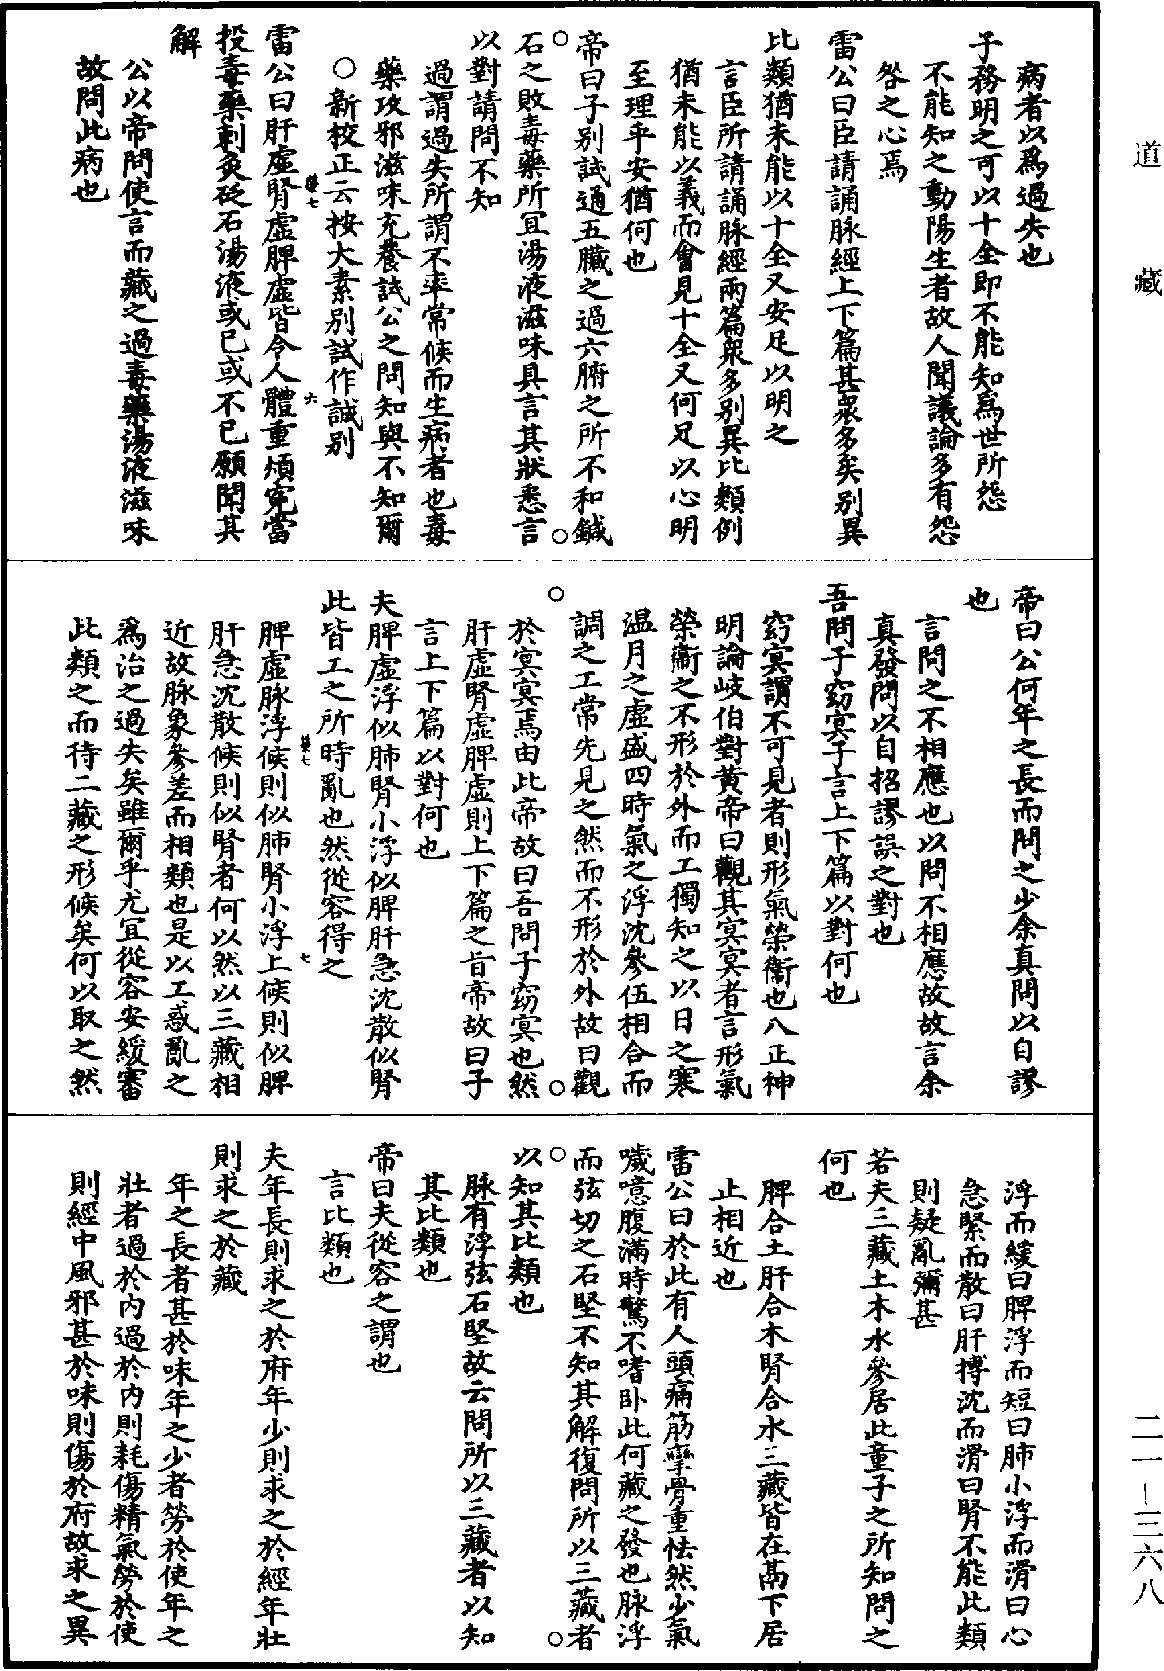 道藏
病者以爲過失也
子務明之可以十全即不能知爲世所怨
不能知之動陽生者故人聞議論多有怨
咎之心焉
雷公曰臣請誦脉經上下篇甚衆多矣別異
比類猶未能以十全又安足以明之
言臣所請誦脉經兩篇衆多別異比類例
猶未能以義而會見十全又何足以心明
至理乎安猶何也
帝曰子別試通五臟之過六腑之所不和鍼
石之敗毒藥所宜湯液滋味具言其狀悉言
以對請問不知
過謂過失所謂不率常候而生病者也毒
藥攻邪滋味充養試公之問知與不知爾
○新校正云按大素別試作誠別
雷公曰肝虛腎虛脾虛皆令人體重煩寃當
投毒藥刺灸砭石湯液或已或不已願聞其
解
公以帝問使言而藏之過毒藥湯液滋味
故問此病也
帝曰公何年之長而問之少余真問以自謬
也
言問之不相應也以問不相應故故言余
真發問以自招謬誤之對也
吾問子窈冥子言上下篇以對何也
窈冥謂不可見者則形氣榮衞也八正神
明論岐伯對黃帝曰觀其冥冥者言形氣
榮衞之不形於外而工獨知之以日之寒
温月之虛盛四時氣之浮沈參伍相合而
調之工常先見之然而不形於外故曰觀
於冥冥焉由此帝故曰吾問子窈冥也然
肝虛腎虛脾虛則上下篇之旨帝故曰子
言上下篇以對何也
夫脾虛浮似肺腎小浮似脾肝急沈散似腎
此皆工之所時亂也然從容得之
脾虛脉浮候則似肺腎小浮上候則似脾
肝急沈散候則似腎者何以然以三藏相
近故脉象參差而相類也是以工惑亂之
爲治之過失矣雖爾乎尤宜從容安緩審
比類之而待二藏之形候矣何以取之然
浮而緩曰脾浮而短曰肺小浮而滑曰心
急緊而散曰肝搏沈而滑曰腎不能比類
則疑亂彌甚
若夫三藏土木水參居此童子之所知問之
何也
脾合土肝合木腎合水三藏皆在鬲下居
止相近也
雷公曰於此有人頭痛筋攣骨重怯然少氣
噦噫腹滿時驚不嗜卧此何藏之發也脉浮
而弦切之石堅不知其解復問所以三藏者
以知其比類也
脉有浮弦石堅故云問所以三藏者以知
其比類也
帝曰夫從容之謂也
言比類也
夫年長則求之於府年少則求之於經年壯
則求之於藏
年之長者甚於味年之少者勞於使年之
壯者過於內過於內則耗傷精氣勞於使
則經中風邪甚於味則傷於府故求之異
二一—三六八